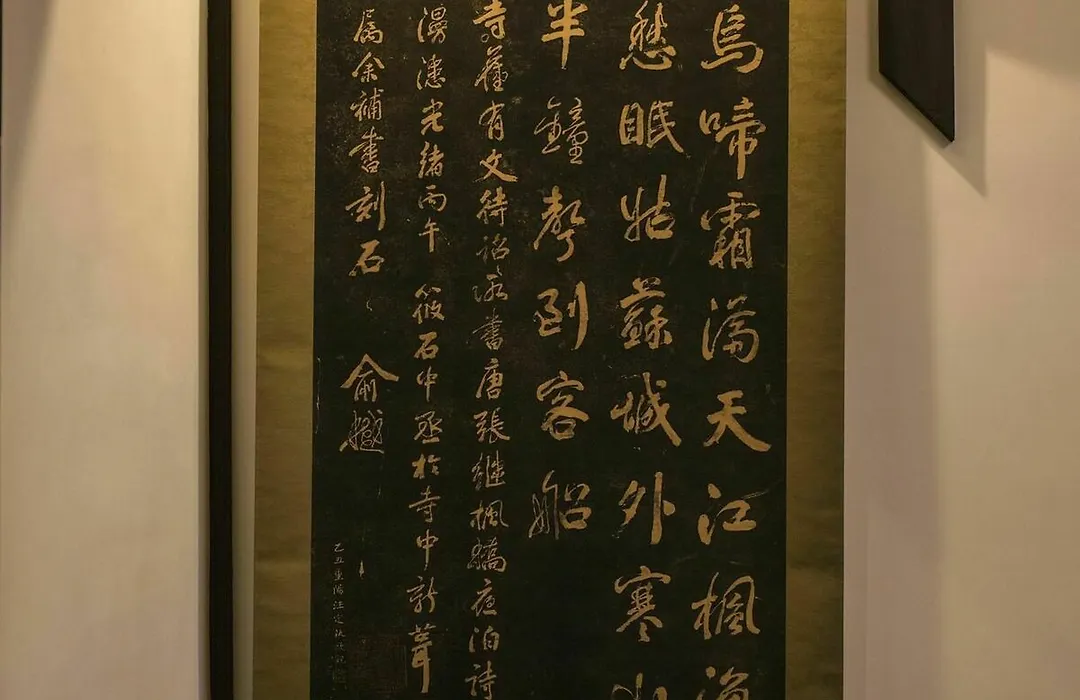 烏啼霜滿天江楓漁
愁眠姑蘇城外寒山
半鐘聲到客船
寺舊有文待詔所書唐張繼楓橋夜泊詩
漫漶光緒丙午筱石中丞於寺中新葺
属余補書刻石俞樾
乙丑重陽汪定執